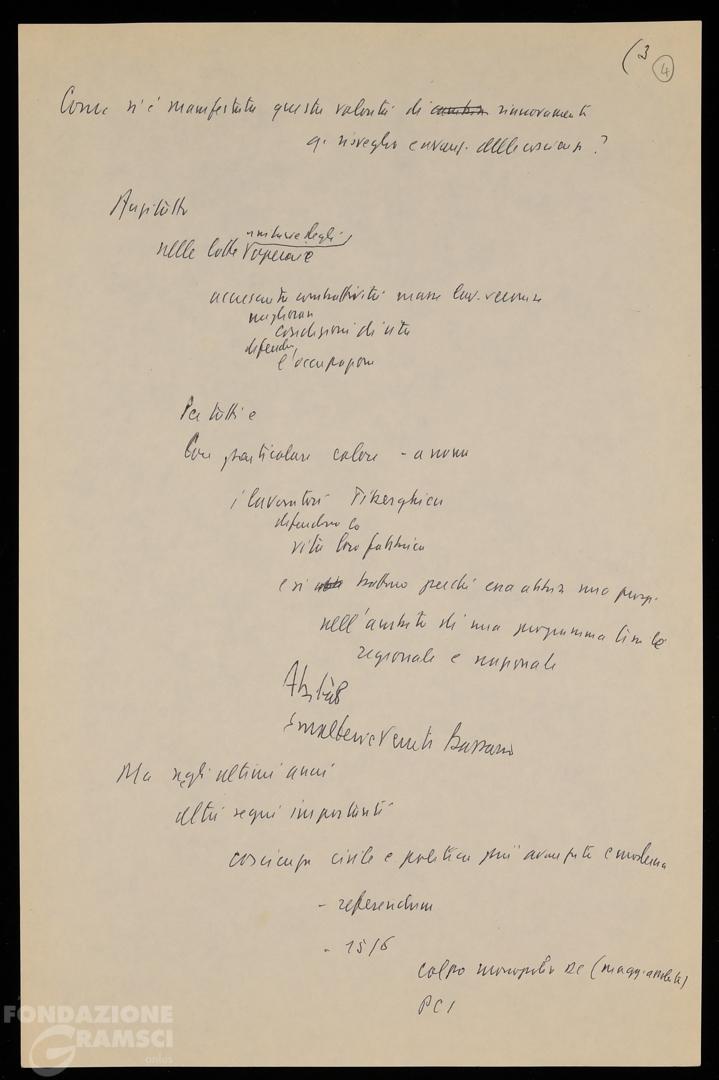 (3
4
Come si è manifestata questa volontà di rinnovamento
di risveglio e avanz. delle coscienze?
Anzitutto
nelle lotte operaie
accresciuta combattività masse lav. venete
migliorare
condizioni di vita
difendere
l'occupazione
Per tutti e
Con particolare calore - a nome
i lavoratori Tiberghien
difendono la
vita loro fabbrica
e si battono perché essa abbia una prosp.
nell'ambito di una programmazione
regionale e nazionale
Smalterie Venete Bassano
Ma negli ultimi anni
altri segni importanti
coscienza civile e politica più avanzata e moderna
- referendum
- 15/6
colpo monopolio DC (magg. assoluta)
PCI
FONDAZIONE
GRAMSCI
onlus